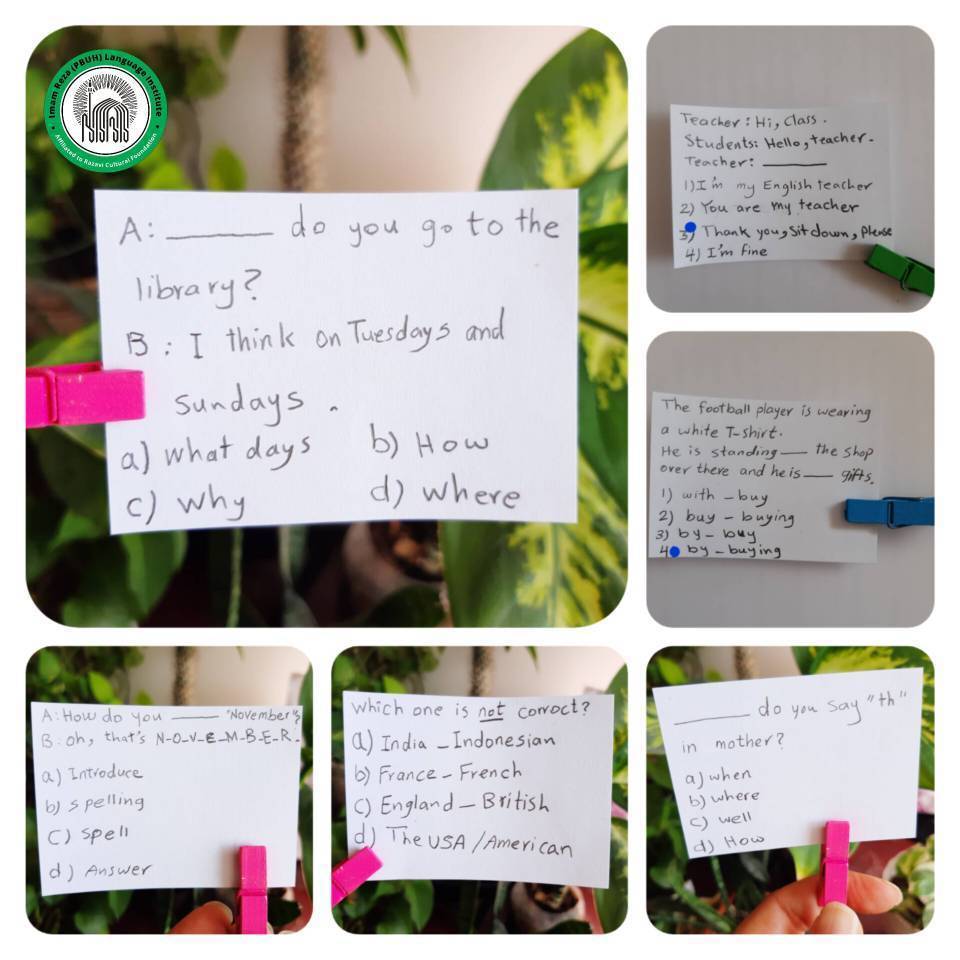 Imam Reza (PBUH) Language Institute
Affiliated to Razavi Cultural Foundation
A: ______ do you go to the
library?
B: I think on Tuesdays and
sundays.
a) what days b) How
c) why d) where
Teacher: Hi, Class.
Students: Hello, teacher.
Teacher: ______
1) I'm my English teacher
2) You are my teacher
3) Thank you, Sit down, Please
4) I'm fine
The football player is wearing
a white T-shirt.
He is standing ___ the shop
over there and he is ___ gifts.
1) with - buy
2) buy - buying
3) by - buy
4 by - buying
A: How do you ______ "November"?
B: oh, that's N-O-V-E-M-B-E-R.
a) Introduce
b) spelling
c) spell
d) Answer
which one is not correct?
a) India - Indonesian
b) France - French
c) England - British
d) The USA / American
______ do you say "th"
in mother?
a) when
b) where
c) well
d) How